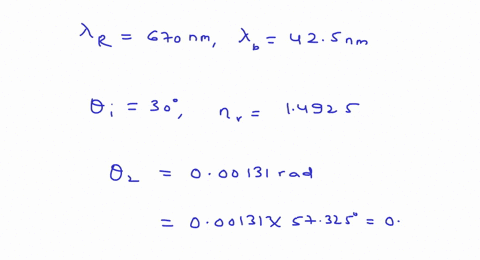 λ_R = 670 nm, λ_b = 42.5 nm
θ_i = 30°, n_r = 1.4925
θ_2 = 0.00131 rad
= 0.00131 × 57.325° = 0.